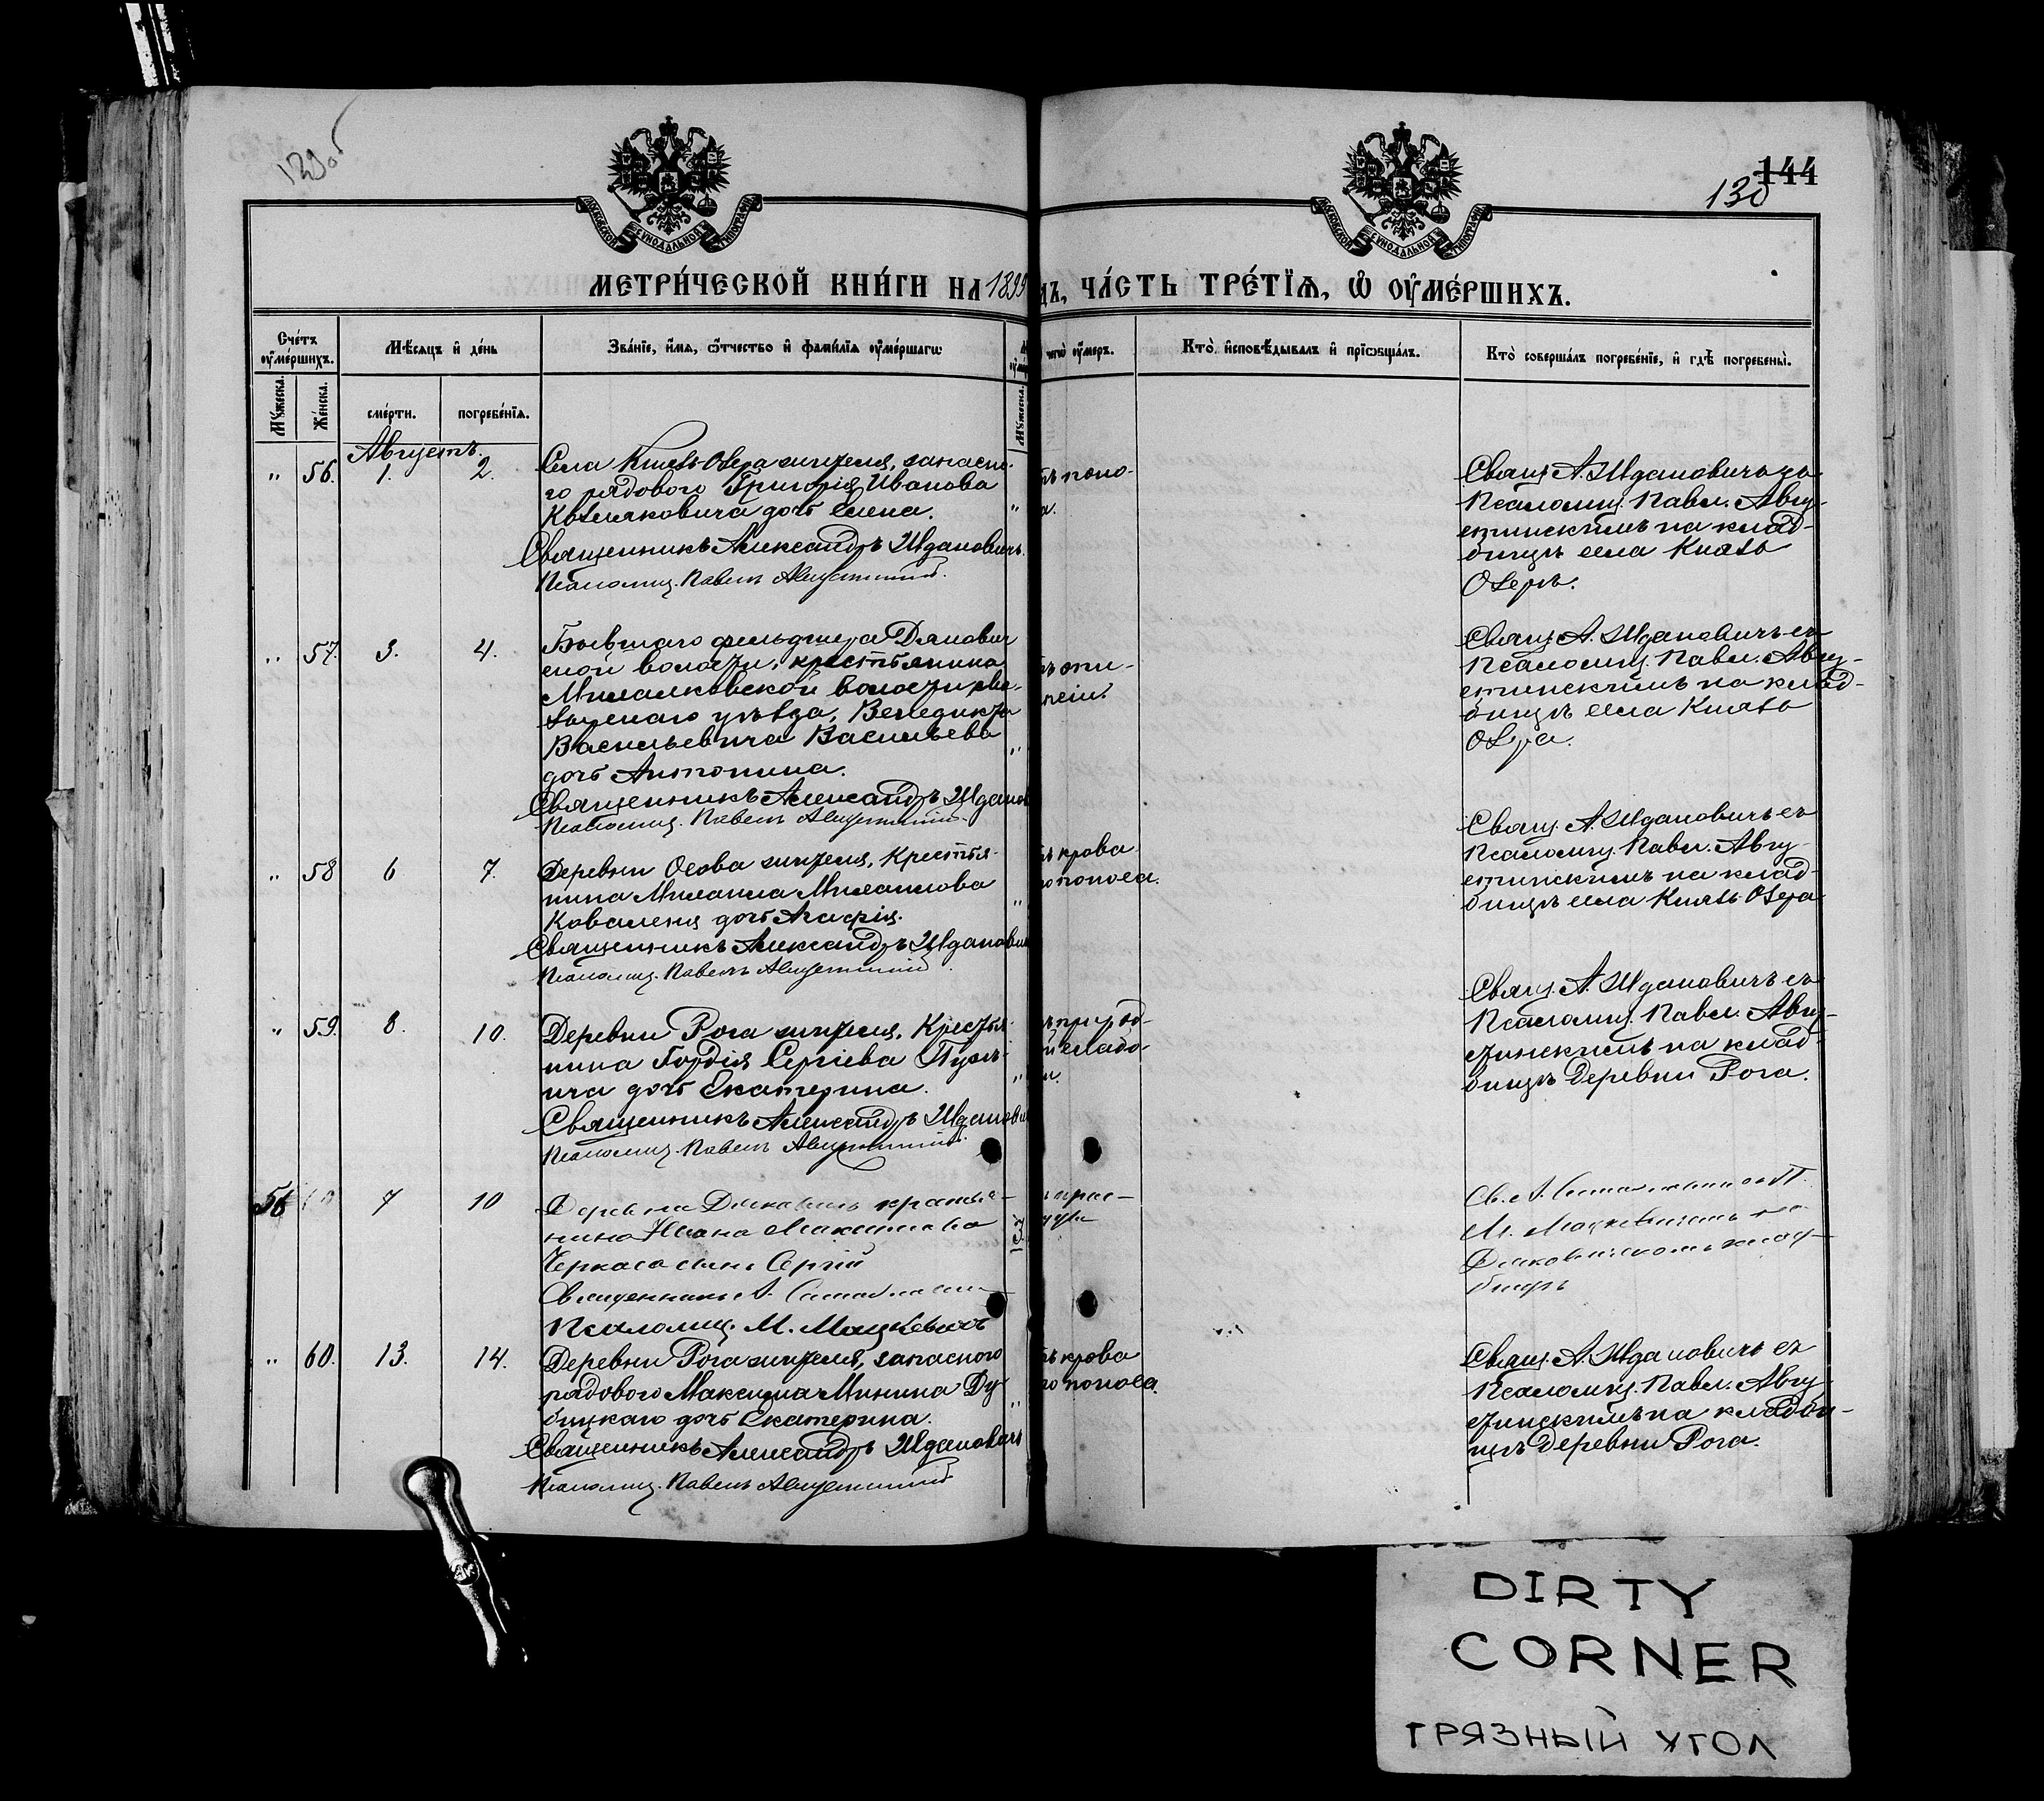 129об
144
130
МОСКОВСКОЙ СѴНОДАЛЬНОЙ ТИПОГРАФІИ
МОСКОВСКОЙ СѴНОДАЛЬНОЙ ТИПОГРАФІИ
МЕТРИ́ЧЕСКОЙ КНИ́ГИ НА 1899 ДЪ, ЧА́СТЬ ТРЕ́ТЇѦ, Ѡ҆ ОУ҆МЕ́РШИХЪ.
Сче́тъ оу҆ме́ршихъ.
Мѣ́сяцъ и҆ де́нь
Зва́нїе, и҆́мѧ, ѻ҆́тчество и҆ фамилїѧ оу҆ме́ршагѡ
чегѡ̀ оу҆́меръ.
Кто̀ и҆сповѣ́дывалъ и҆ прїѡбща́лъ.
Кто̀ соверша́лъ погребе́нїе, и҆ гдѣ̀ погребены̀.
Мꙋ́жеска.
Же́нска.
сме́рти.
погребе́нїѧ.
Мꙋ́жеска.
Августъ.
" 56. 1. 2. Села Князь-Озера жителя, запасно-
го рядового Григорія Иванова
дочь Елена.
Священникъ Александръ Ждановичъ.
Псаломщ. Павелъ Августинскій.
ъ поно-
а.
Свящ. А. Ждановичъ съ
Псаломщ. Павл. Авгу-
стинскимъ на клад-
бищѣ села Князь
Озеръ.
" 57. 3. 4. Бывшаго фельдшера Дякович
ской волости, крестьянина
волости
уѣзда, Венедикта
Васильевича Васильева
дочь Антонина.
Священникъ Александръ Жданов
Псаломщ. Павелъ Августинскій.
Свящ. А. Ждановичъ съ
Псаломщ. Павл. Авгу-
стинскимъ на клад-
бищѣ села Князь
Озера.
" 58 6 7. Деревни Осова жителя, Крестья-
нина Михаила Михайлова
Коваленя дочь Агафія.
Священникъ Александръ Жданович
Псаломщ. Павелъ Августинскій.
ъ крова
го поноса.
Свящ. А. Ждановичъ съ
Псаломщ. Павл. Авгу-
стинскимъ на клад-
бищѣ села Князь-Озера
" 59. 8. 10. Деревни Рога жителя, Крестья-
нина Гордія Сергіева
дочь Екатерина.
Священникъ Александръ Жданови
Псаломщ. Павелъ Августинскій.
ъ природ-
й слабо-
и.
Свящ. А. Ждановичъ съ
Псаломщ. Павл. Авгу-
стинскимъ на клад-
бищѣ деревни Рога.
56 7 10 Деревни Дяковичъ крестья-
нина Ивана Максимова
Черкаса сынъ Сергій
Священникъ А.
Псаломщ. М. Мацкевичъ
3.
Св. А.
М. Мацкевичемъ на
Дяковичскомъ клад-
бищѣ
" 60. 13. 14. Деревни Рога жителя, запасного
рядового Максима Минина Ду-
бицкаго дочь Екатерина.
Священникъ Александръ Ждановичъ
Псаломщ. Павелъ Августинскій
ъ крова
го поноса.
Свящ. А. Ждановичъ съ
Псаломщ. Павл. Авгу-
стинскимъ на кладби-
щѣ деревни Рога.
DIRTY
CORNER
ГРЯЗНЫЙ УГОЛ